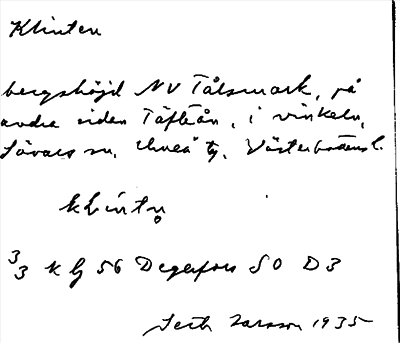 Klinten
bergshöjd NV Tålsmark, på
andra sidan Täfteån, i vinkeln,
Sävars sn, Umeå tg, Västerbottensl.
klintn̥
3/3 k bj 56 Degerfors SO D3
Seth Larsson 1935